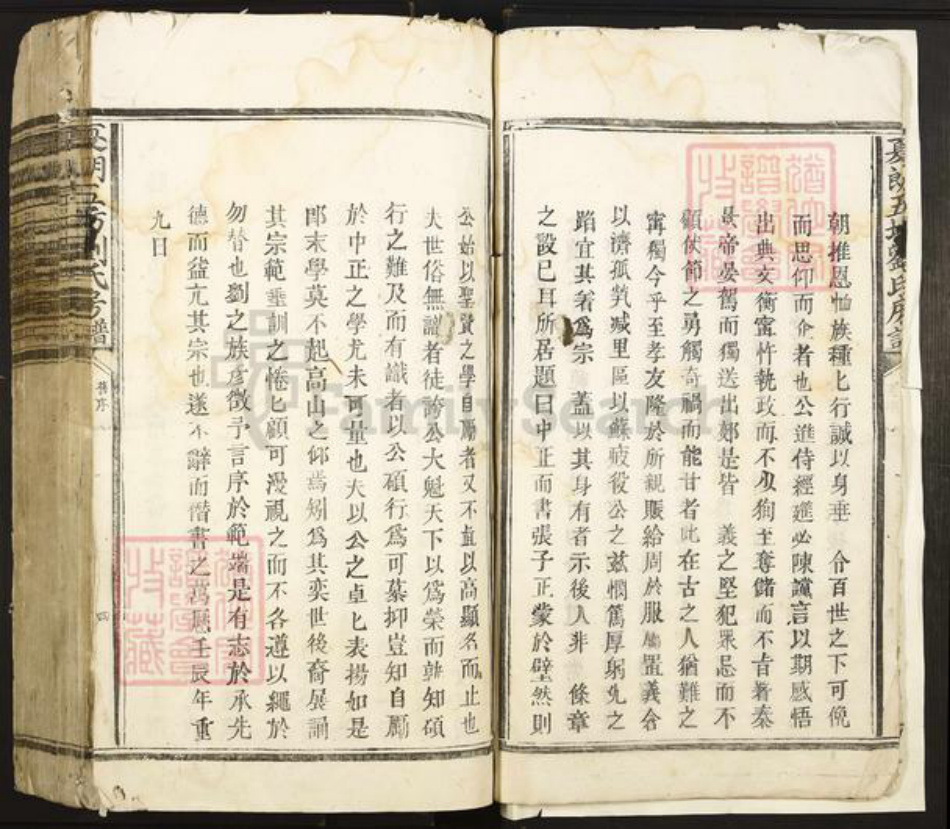 朝推恩恤族種匕行誠以身垂 令百世之下可俛
而思仰而企者也公進侍經筵必陳讜言以期感悟
出典文衡寗忤執政而不少狥至奪儲而不肯署秦
景帝晏駕而獨送出郊是皆 義之堅犯眾忌而不
顧伏節之勇觸奇禍而能甘者此在古之人猶難之
寗獨今乎至孝友隆於所親賑給周於服屬置義倉
以濟孤㷀减里區以蘇疲役公之兹憫篤厚躬先之
蹈宜其著為宗 蓋以其身有者示後人非 條章
之設已耳所居題曰中正而書張子正蒙於壁然則
公始以聖賢之學自勵者又不直以高顯名而止也
夫世俗無識者徒誇公大魁天下以為榮而孰知碩
行之難及而有識者以公碩行為可慕抑豈知自勵
於中正之學尤未可量也夫以公之卓匕表揚如是
即末學莫不起高山之仰焉矧為其奕世後裔展誦
其宗範垂訓之惓匕顧可漫視之而不各遵以繩於
勿替也劉之族彥徵予言序於範端是有志於承先
德而益亢其宗也遂不辭而僭書之萬曆壬辰年重
九日
舊序
四
FamilySearch